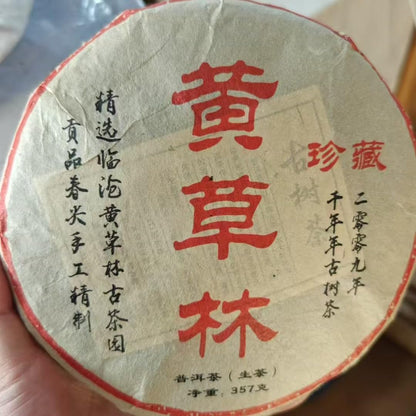 珍藏
二零零九年
千年年古樹茶
黄草林
精选临沧黄草林古茶园
贡品春尖手工精制
古樹茶
普洱茶（生茶）
净重：357克